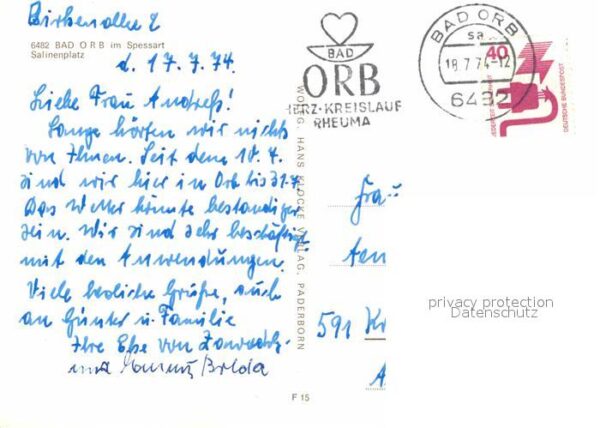 Birkenallee 2
6482 BAD ORB im Spessart
Salinenplatz
d. 17.7.74.
Liebe Frau Andreß!
Lange hörten wir nichts
von Ihnen. Seit dem 10.7.
sind wir hier in Orb bis 31.7.
Das Wetter könnte beständiger
sein. Wir sind sehr beschäftigt
mit den Anwendungen.
Viele herzliche Grüße, auch
an Günter u. Familie
Ihre Else von
und
F 15
WOLFG. HANS KLOCKE VERLAG, PADERBORN
BAD
ORB
HERZ-KREISLAUF
RHEUMA
BAD ORB
sa
18.7.74-12
6482
40
DEUTSCHE BUNDESPOST
Frau
591 Kr
A
privacy protection
Datenschutz